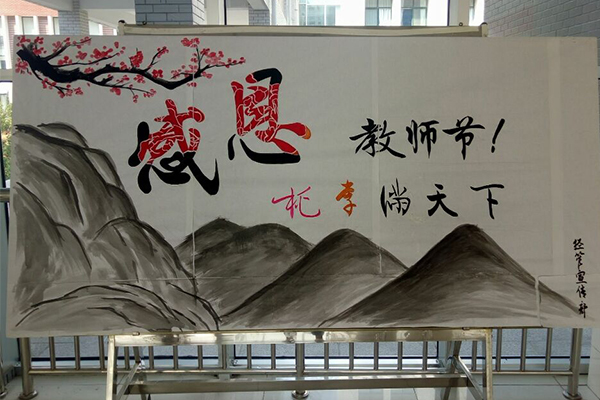 感恩
教师节!
桃李满天下
经管宣传部